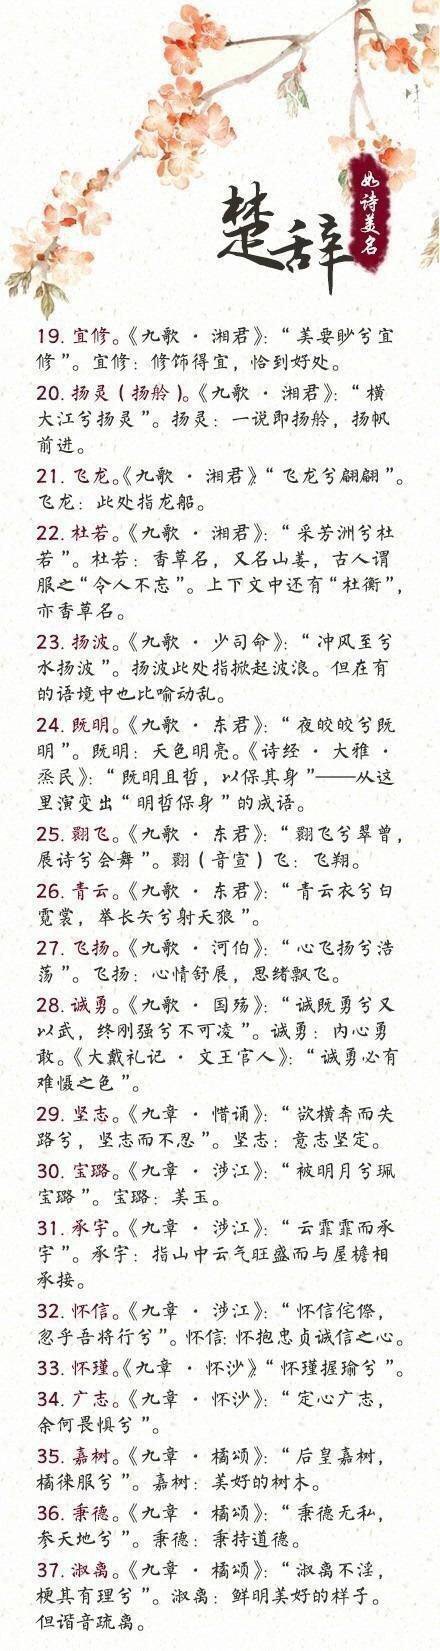 楚辞
如诗美名
19. 宜修。《九歌 · 湘君》：“美要眇兮宜
修”。宜修：修饰得宜，恰到好处。
20. 扬灵（扬舲）。《九歌 · 湘君》：“横
大江兮扬灵”。扬灵：一说即扬舲，扬帆
前进。
21. 飞龙。《九歌 · 湘君》“飞龙兮翩翩”。
飞龙：此处指龙船。
22. 杜若。《九歌 · 湘君》：“采芳洲兮杜
若”。杜若：香草名，又名山姜，古人谓
服之“令人不忘”。上下文中还有“杜衡”，
亦香草名。
23. 扬波。《九歌 · 少司命》：“冲风至兮
水扬波”。扬波此处指掀起波浪。但在有
的语境中也比喻动乱。
24. 既明。《九歌 · 东君》：“夜皎皎兮既
明”。既明：天色明亮。《诗经 · 大雅 ·
烝民》：“既明且哲，以保其身”——从这
里演变出“明哲保身”的成语。
25. 翾飞。《九歌 · 东君》：“翾飞兮翠曾，
展诗兮会舞”。翾（音宣）飞：飞翔。
26. 青云。《九歌 · 东君》：“青云衣兮白
霓裳，举长矢兮射天狼”。
27. 飞扬。《九歌 · 河伯》：“心飞扬兮浩
荡”。飞扬：心情舒展，思绪飘飞。
28. 诚勇。《九歌 · 国殇》：“诚既勇兮又
以武，终刚强兮不可凌”。诚勇：内心勇
敢。《大戴礼记 · 文王官人》：“诚勇必有
难慑之色”。
29. 坚志。《九章 · 惜诵》：“欲横奔而失
路兮，坚志而不忍”。坚志：意志坚定。
30. 宝璐。《九章 · 涉江》：“被明月兮珮
宝璐”。宝璐：美玉。
31. 承宇。《九章 · 涉江》：“云霏霏而承
宇”。承宇：指山中云气旺盛而与屋檐相
承接。
32. 怀信。《九章 · 涉江》：“怀信侘傺，
忽乎吾将行兮”。怀信：怀抱忠贞诚信之心。
33. 怀瑾。《九章 · 怀沙》“怀瑾握瑜兮”。
34. 广志。《九章 · 怀沙》：“定心广志，
余何畏惧兮”。
35. 嘉树。《九章 · 橘颂》：“后皇嘉树，
橘徕服兮”。嘉树：美好的树木。
36. 秉德。《九章 · 橘颂》：“秉德无私，
参天地兮”。秉德：秉持道德。
37. 淑离。《九章 · 橘颂》：“淑离不淫，
梗其有理兮”。淑离：鲜明美好的样子。
但谐音疏离。